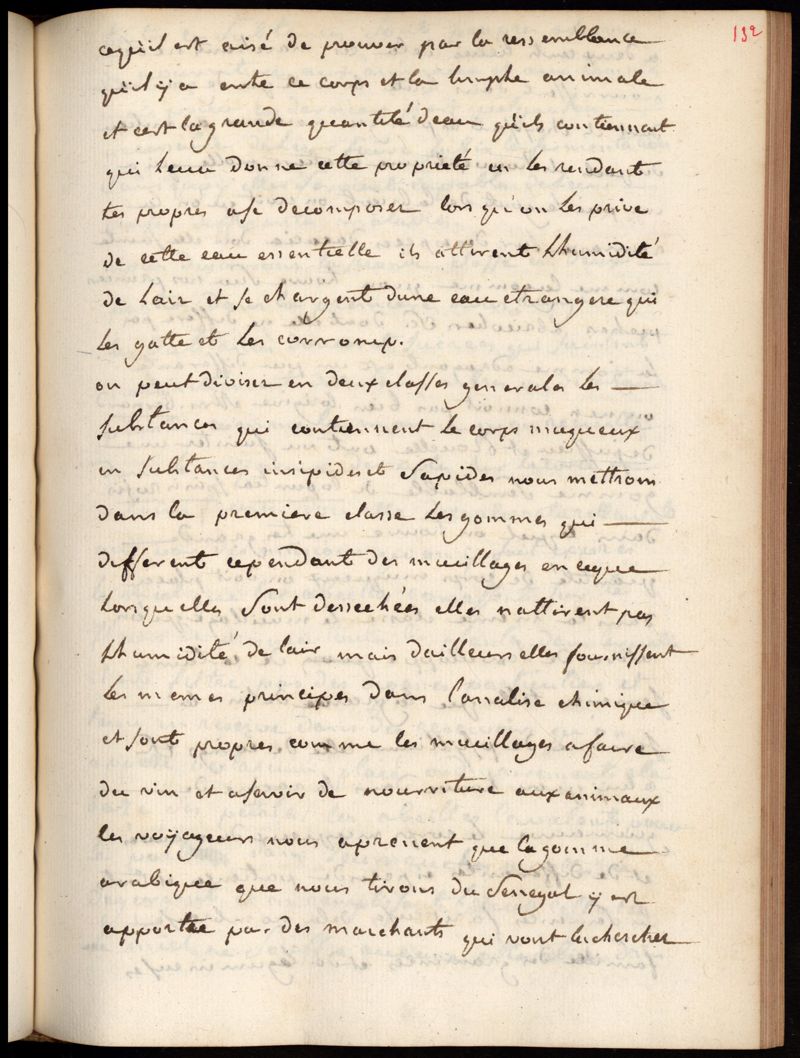 132
cequil est aisé de prouver par la ressemblance
quil y a entre ce corps et la limphe animale
et cest la grande quantité deau quils contiennent
qui leur donne cette proprieté en les rendant
tes propres ase decomposer lorsqu'on les prive
de cette eau essentielle ils attirent lhumidité
de lair et se chargent dune eau etrangere qui
les gatte et les corromp.
on peut diviser en deux classes generales les
substances qui contiennent le corps muqueux
en substances insipides et sapides nous mettrons
dans la premiere classe les gommes qui
different cependant des mucillages en ceque
lorsquelles sont dessechées elles nattirent pas
lhumidité de lair mais dailleurs elles fournissent
les memes principes dans lanalise chimique
et sont propres comme les mucillages a faire
du vin et aservir de nourriture aux animaux
les voÿageurs nous aprenent que la gomme
arabique que nous tirons du Senegal y est
apportée par des marchants qui vont la chercher